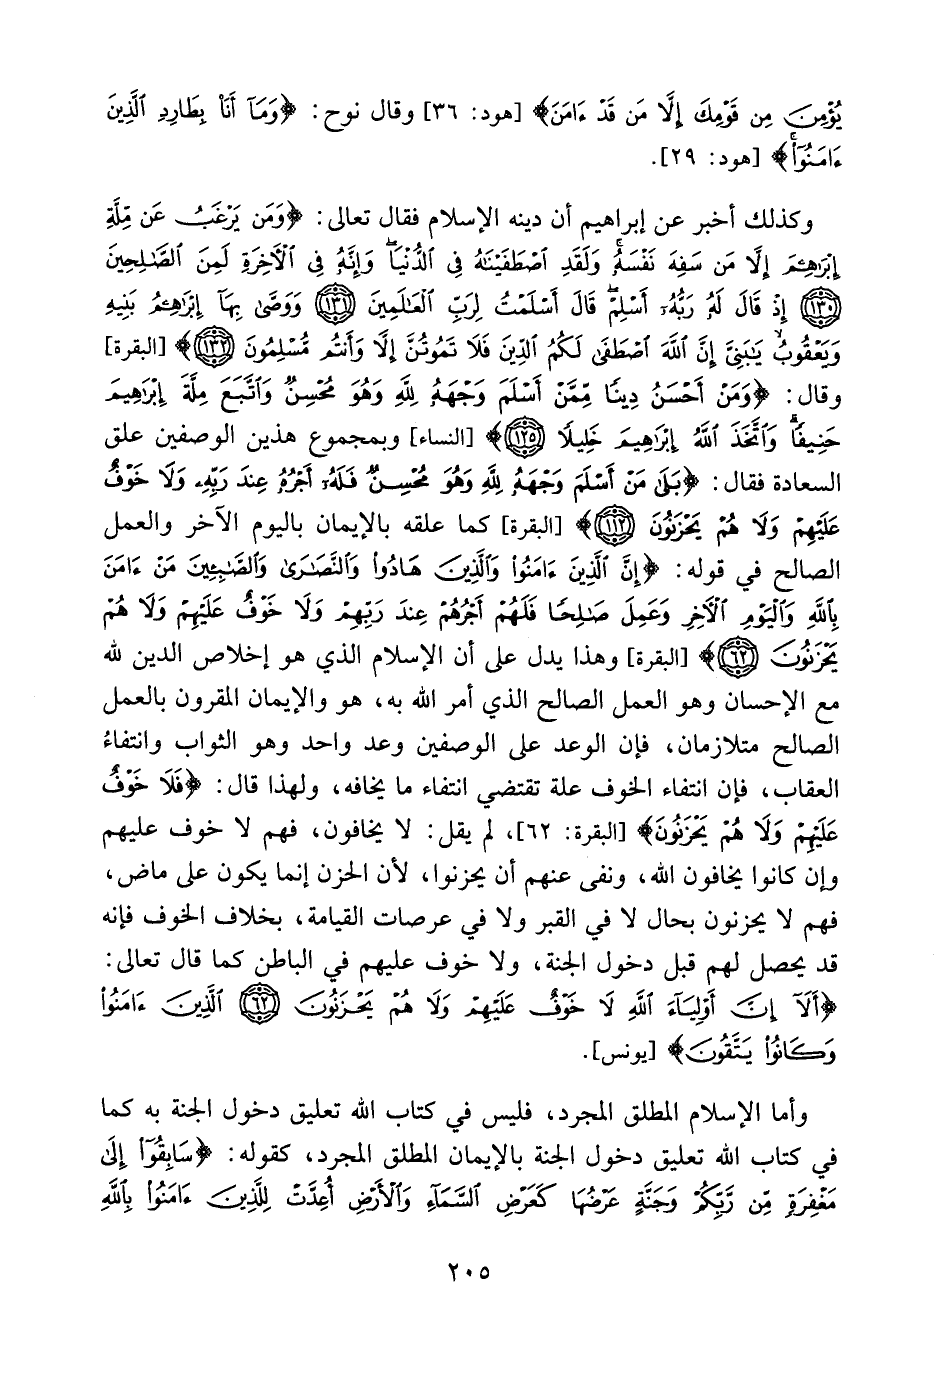 يُؤْمِنَ مِن قَوْمِكَ إِلَّا مَن قَدْ ءَامَنَ﴾ [هود: ٣٦] وقال نوح: ﴿وَمَآ أَنَا۠ بِطَارِدِ ٱلَّذِينَ
ءَامَنُوٓا۟ۚ﴾ [هود: ٢٩].
وكذلك أخبر عن إبراهيم أن دينه الإسلام فقال تعالى: ﴿وَمَن يَرْغَبُ عَن مِّلَّةِ
إِبْرَٰهِـۧمَ إِلَّا مَن سَفِهَ نَفْسَهُۥۚ وَلَقَدِ ٱصْطَفَيْنَٰهُ فِى ٱلدُّنْيَاۖ وَإِنَّهُۥ فِى ٱلْأَخِرَةِ لَمِنَ ٱلصَّٰلِحِينَ
﴿١٣٠﴾ إِذْ قَالَ لَهُۥ رَبُّهُۥٓ أَسْلِمْۖ قَالَ أَسْلَمْتُ لِرَبِّ ٱلْعَٰلَمِينَ ﴿١٣١﴾ وَوَصَّىٰ بِهَآ إِبْرَٰهِـۧمُ بَنِيهِ
وَيَعْقُوبُۖ يَٰبَنِىَّ إِنَّ ٱللَّهَ ٱصْطَفَىٰ لَكُمُ ٱلدِّينَ فَلَا تَمُوتُنَّ إِلَّا وَأَنتُم مُّسْلِمُونَ ﴿١٣٢﴾﴾ [البقرة]
وقال: ﴿وَمَنْ أَحْسَنُ دِينًا مِّمَّنْ أَسْلَمَ وَجْهَهُۥ لِلَّهِ وَهُوَ مُحْسِنٌ وَٱتَّبَعَ مِلَّةَ إِبْرَٰهِيمَ
حَنِيفًاۗ وَٱتَّخَذَ ٱللَّهُ إِبْرَٰهِيمَ خَلِيلًا ﴿١٢٥﴾﴾ [النساء] وبمجموع هذين الوصفين علق
السعادة فقال: ﴿بَلَىٰ مَنْ أَسْلَمَ وَجْهَهُۥ لِلَّهِ وَهُوَ مُحْسِنٌ فَلَهُۥٓ أَجْرُهُۥ عِندَ رَبِّهِۦ وَلَا خَوْفٌ
عَلَيْهِمْ وَلَا هُمْ يَحْزَنُونَ ﴿١١٢﴾﴾ [البقرة] كما علقه بالإيمان باليوم الآخر والعمل
الصالح في قوله: ﴿إِنَّ ٱلَّذِينَ ءَامَنُوا۟ وَٱلَّذِينَ هَادُوا۟ وَٱلنَّصَٰرَىٰ وَٱلصَّٰبِـِٔينَ مَنْ ءَامَنَ
بِٱللَّهِ وَٱلْيَوْمِ ٱلْأَخِرِ وَعَمِلَ صَٰلِحًا فَلَهُمْ أَجْرُهُمْ عِندَ رَبِّهِمْ وَلَا خَوْفٌ عَلَيْهِمْ وَلَا هُمْ
يَحْزَنُونَ ﴿٦٢﴾﴾ [البقرة] وهذا يدل على أن الإسلام الذي هو إخلاص الدين لله
مع الإحسان وهو العمل الصالح الذي أمر الله به، هو والإيمان المقرون بالعمل
الصالح متلازمان، فإن الوعد على الوصفين وعد واحد وهو الثواب وانتفاءُ
العقاب، فإن انتفاء الخوف علة تقتضي انتفاء ما يخافه، ولهذا قال: ﴿فَلَا خَوْفٌ
عَلَيْهِمْ وَلَا هُمْ يَحْزَنُونَ﴾ [البقرة: ٦٢]، لم يقل: لا يخافون، فهم لا خوف عليهم
وإن كانوا يخافون الله، ونفى عنهم أن يحزنوا، لأن الحزن إنما يكون على ماض،
فهم لا يحزنون بحال لا في القبر ولا في عرصات القيامة، بخلاف الخوف فإنه
قد يحصل لهم قبل دخول الجنة، ولا خوف عليهم في الباطن كما قال تعالى:
﴿أَلَآ إِنَّ أَوْلِيَآءَ ٱللَّهِ لَا خَوْفٌ عَلَيْهِمْ وَلَا هُمْ يَحْزَنُونَ ﴿٦٢﴾ ٱلَّذِينَ ءَامَنُوا۟
وَكَانُوا۟ يَتَّقُونَ﴾ [يونس].
وأما الإسلام المطلق المجرد، فليس في كتاب الله تعليق دخول الجنة به كما
في كتاب الله تعليق دخول الجنة بالإيمان المطلق المجرد، كقوله: ﴿سَابِقُوٓا۟ إِلَىٰ
مَغْفِرَةٍ مِّن رَّبِّكُمْ وَجَنَّةٍ عَرْضُهَا كَعَرْضِ ٱلسَّمَآءِ وَٱلْأَرْضِ أُعِدَّتْ لِلَّذِينَ ءَامَنُوا۟ بِٱللَّهِ
٢٠٥